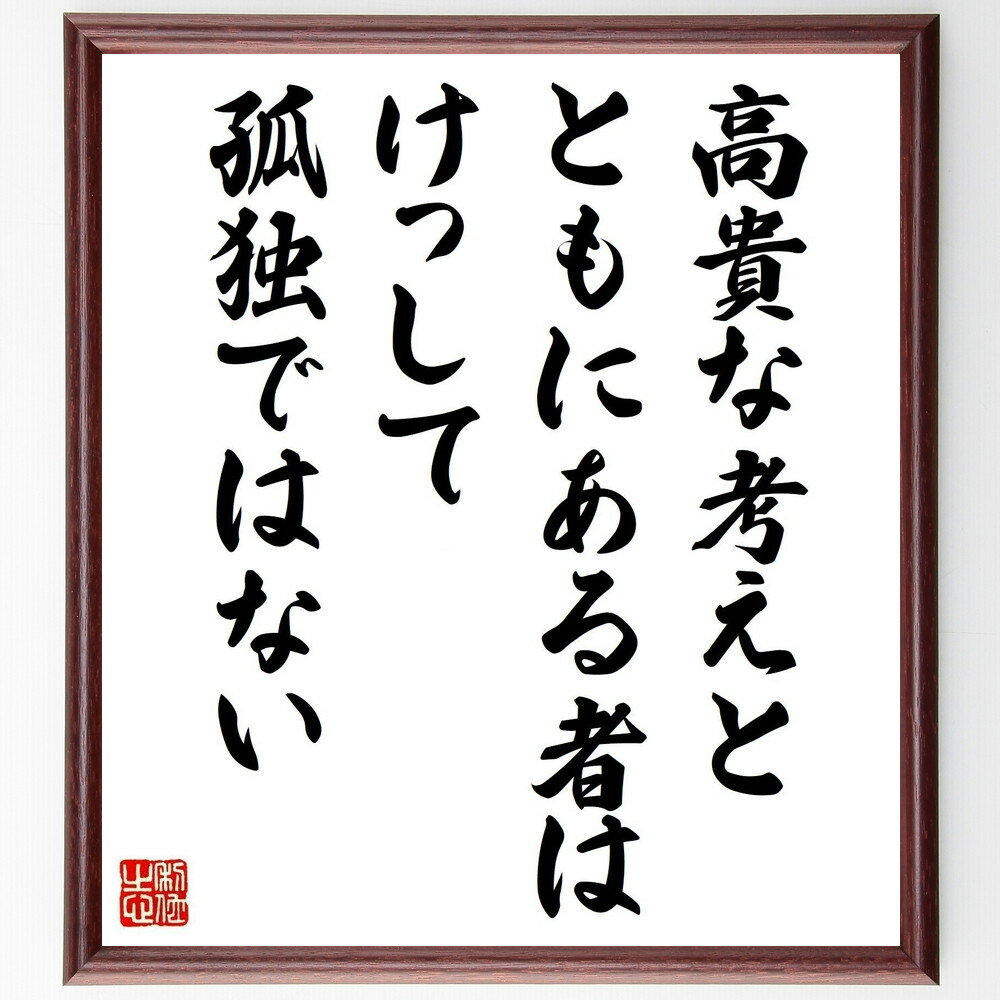 高貴な考えと
ともにある者は
けっして
孤独ではない